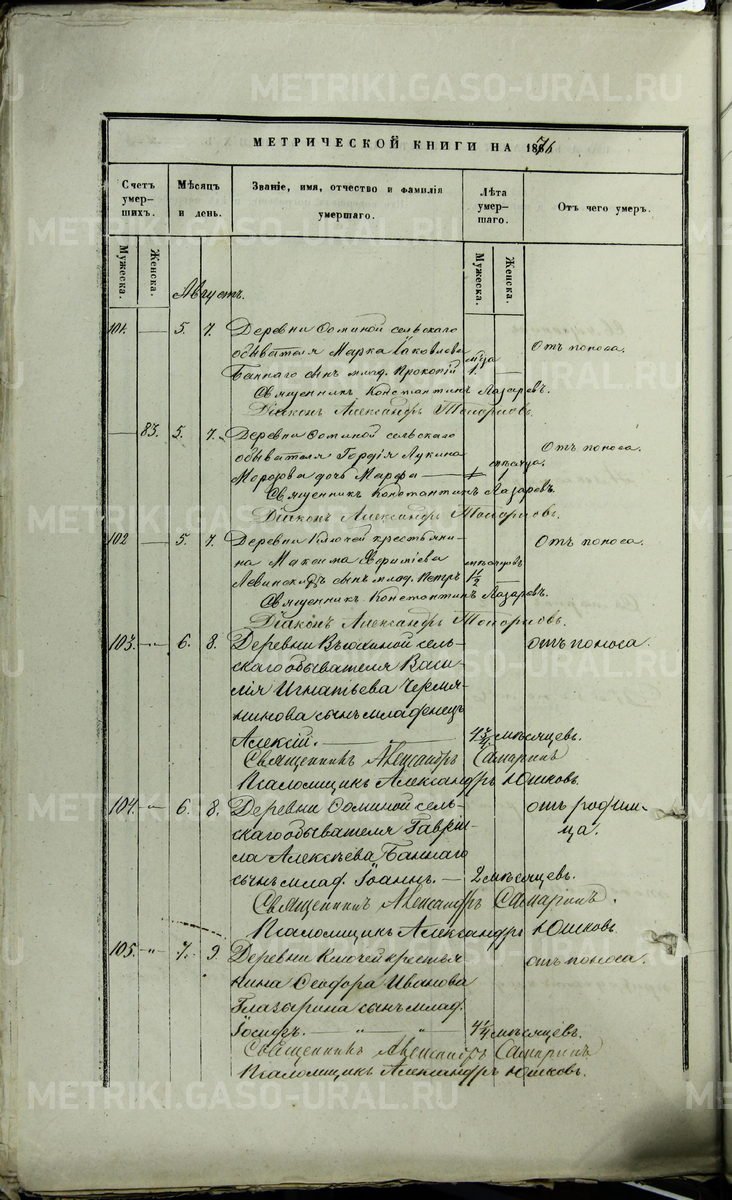 METRIKI.GASO-URAL.RU
МЕТРИЧЕСКОЙ КНИГИ НА 1876
Счетъ умер-шихъ.
Мѣсяцъ и день.
Званіе, имя, отчество и фамилія умершаго.
Лѣта умер-шаго.
Отъ чего умеръ.
Мужеска.
Женска.
Мужеска.
Женска.
Августъ.
101. — 5. 7. Деревни Ѳоминой сельскаго
обывателя Марка Іаковлева
Баннаго сынъ млад. Прокопій 1. — Отъ поноса.
Священникъ Константинъ Лазаревъ.
Діаконъ Александръ Топорковъ.
— 83. 5. 7. Деревни Ѳоминой сельскаго
обывателя Гордія Лукина Отъ поноса.
Морозова дочь Марфа —
Священникъ Константинъ Лазаревъ.
Діаконъ Александръ Топорковъ.
102 — 5. 7. Деревни Ключей крестьяни- Отъ поноса.
на Максима Ефиміева мѣсяцовъ
Левинскихъ сынъ млад. Петръ 1½ —
Священникъ Константинъ Лазаревъ.
Діаконъ Александръ Топорковъ.
103. -"- 6. 8. Деревни Вьюхиной сель- отъ поноса.
скаго обывателя Васи-
лія Игнатьева Чермя-
нинова сынъ младенецъ
Алексій. — мѣсяцевъ.
Священникъ Александръ Самаринъ
Псаломщикъ Александръ Юшковъ.
104. -"- 6. 8. Деревни Ѳоминой сель- отъ родим-
скаго обывателя Гаврі- ца.
ла Алексѣева Баннаго
сынъ млад. Іоаннъ. — 2 мѣсяцевъ.
Священникъ Александръ Самаринъ.
Псаломщикъ Александръ Юшковъ.
105. " 7. 9. Деревни Ключей крестья- отъ поноса.
нина Ѳеодора Иванова
Глазырина сынъ млад.
Іосифъ. — " — " — мѣсяцевъ.
Священникъ Александръ Самаринъ
Псаломщикъ Александръ Юшковъ.